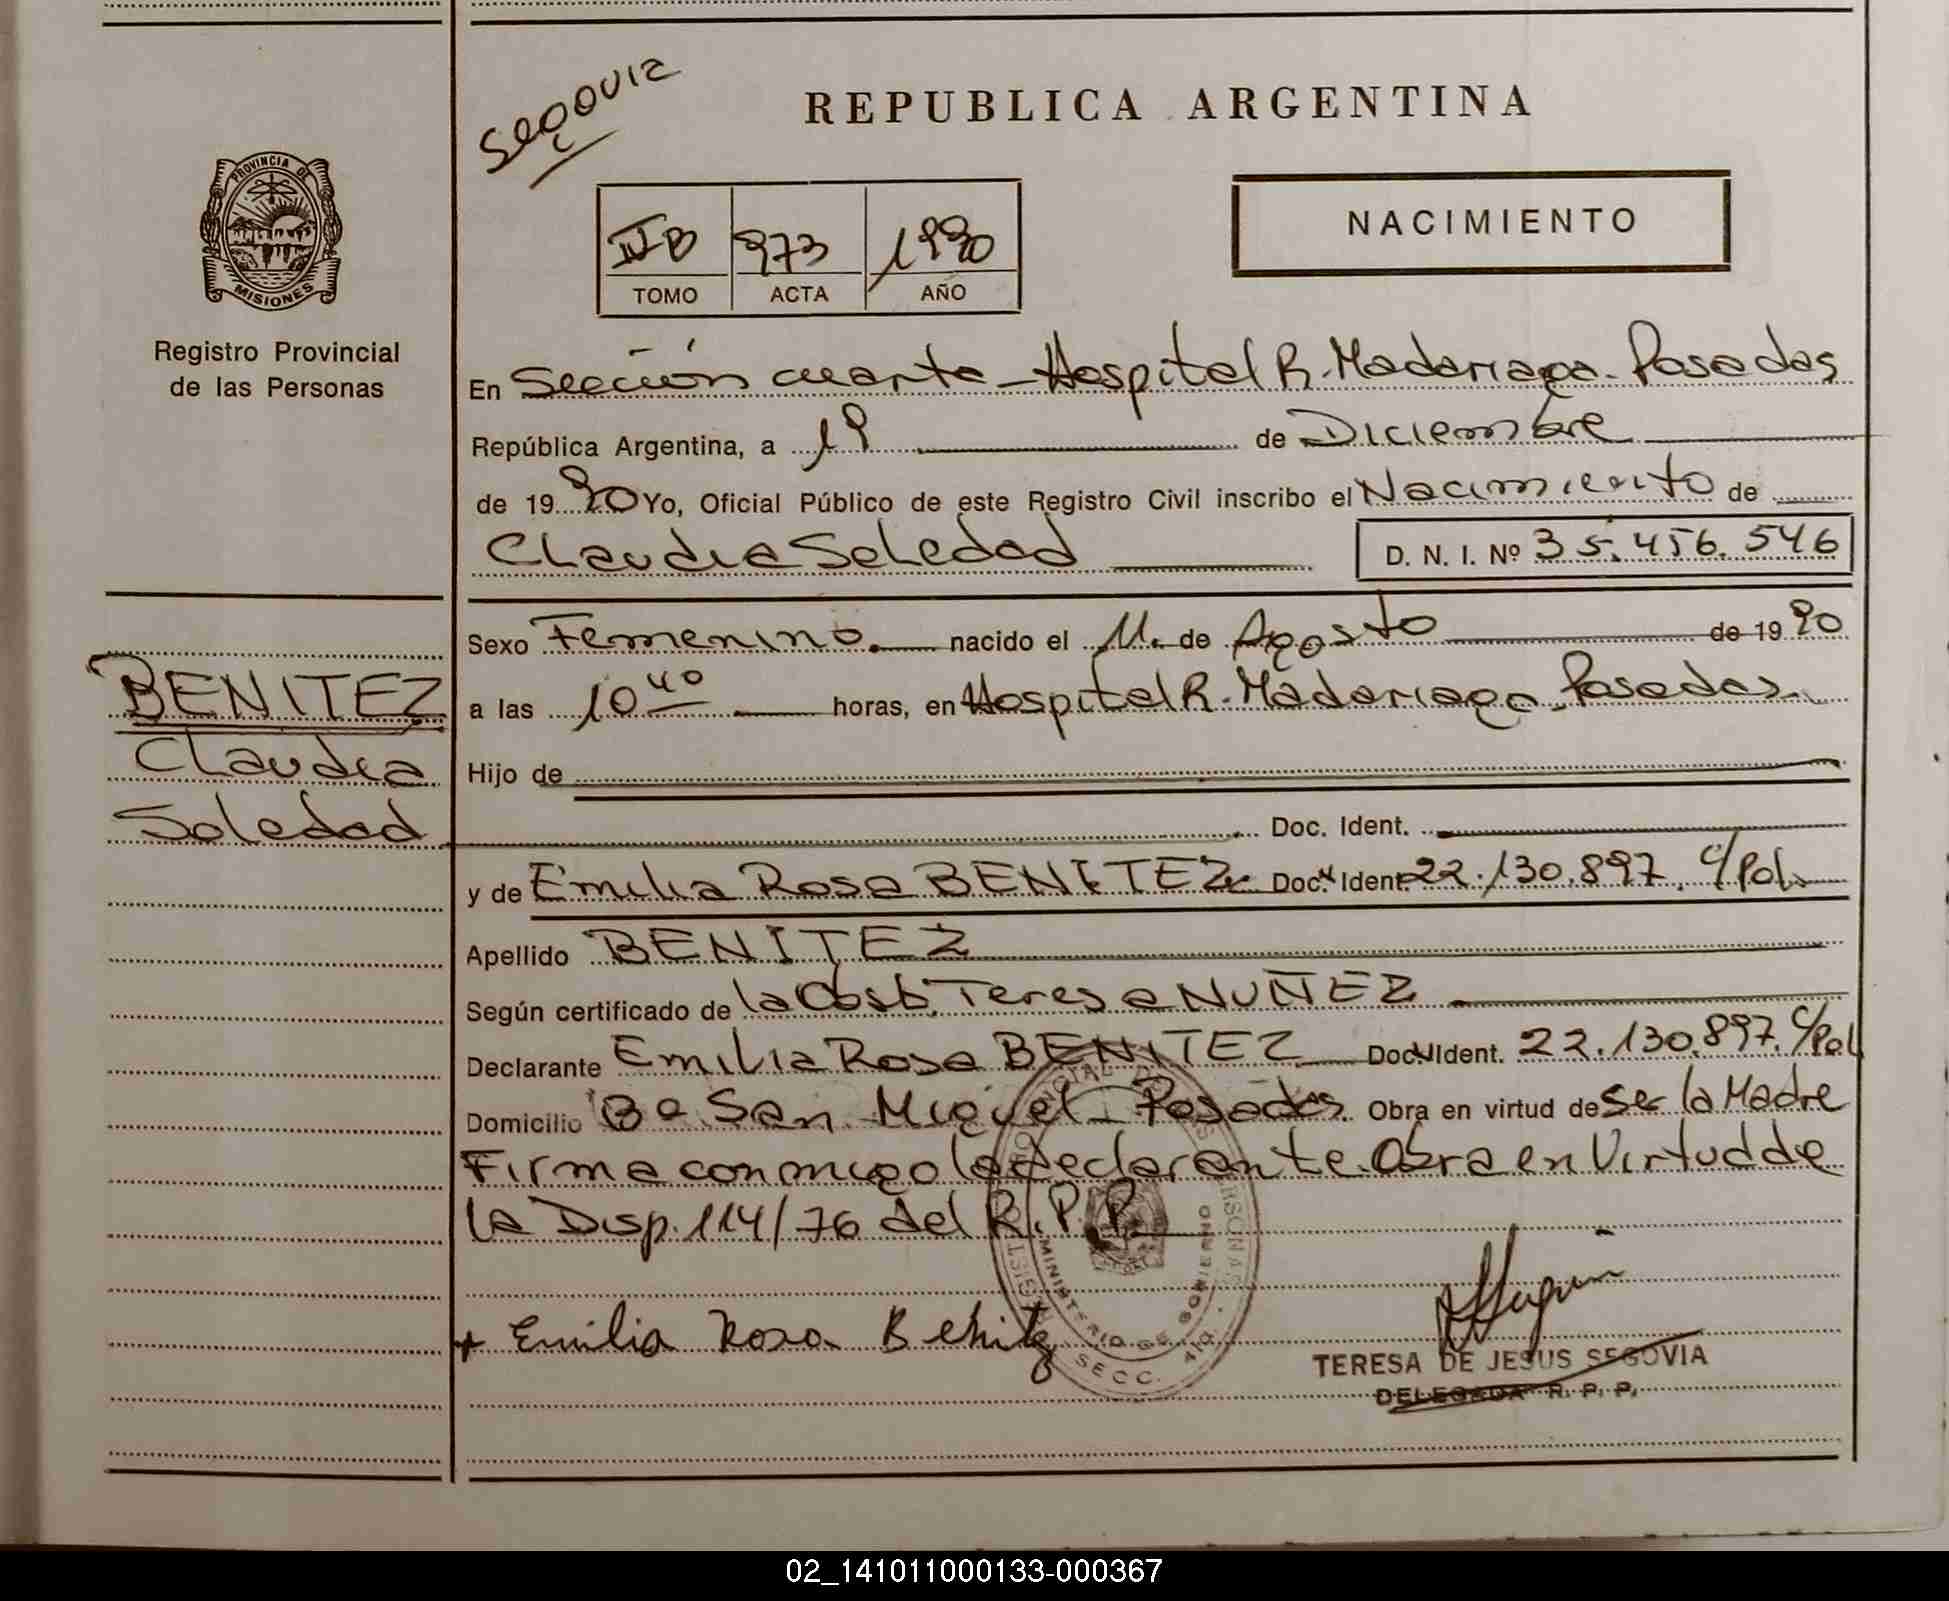 Segovia
REPUBLICA ARGENTINA
PROVINCIA DE
MISIONES
NACIMIENTO
IV B 973 1990
TOMO ACTA AÑO
Registro Provincial
de las Personas
En Sección cuarta - Hospital R. Madariaga - Posadas
República Argentina, a 19 de Diciembre
de 1990 Yo, Oficial Público de este Registro Civil inscribo el Nacimiento de
Claudia Soledad D. N. I. Nº 35.456.546
Sexo Femenino. nacido el 11. de Agosto de 1990
a las 10 40 horas, en Hospital R. Madariaga - Posadas
BENITEZ
Claudia
Soledad
Hijo de
Doc. Ident.
y de Emilia Rosa BENITEZ Doc. Ident. 22.130.897. C/Pol.
Apellido BENITEZ
Según certificado de la Obst. Teresa NUÑEZ
Declarante Emilia Rosa BENITEZ Doc. Ident. 22.130.897. C/Pol
Domicilio Bº San Miguel - Posadas. Obra en virtud de Ser la Madre
Firma conmigo la declarante. Obra en Virtud de
la Disp. 114/76 del R.P.P.
MINISTERIO DE GOBIERNO
SECC. 4ta.
+ Emilia Rosa Benitez
TERESA DE JESUS SEGOVIA
DELEGADA R. P. P.
02_141011000133-000367